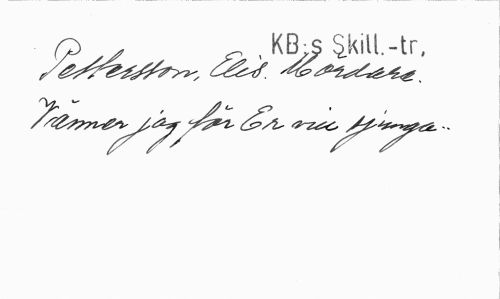 KB:s Skill.-tr.
Pettersson, Elis. Mördare.
Vänner jag för Er vill sjunga..